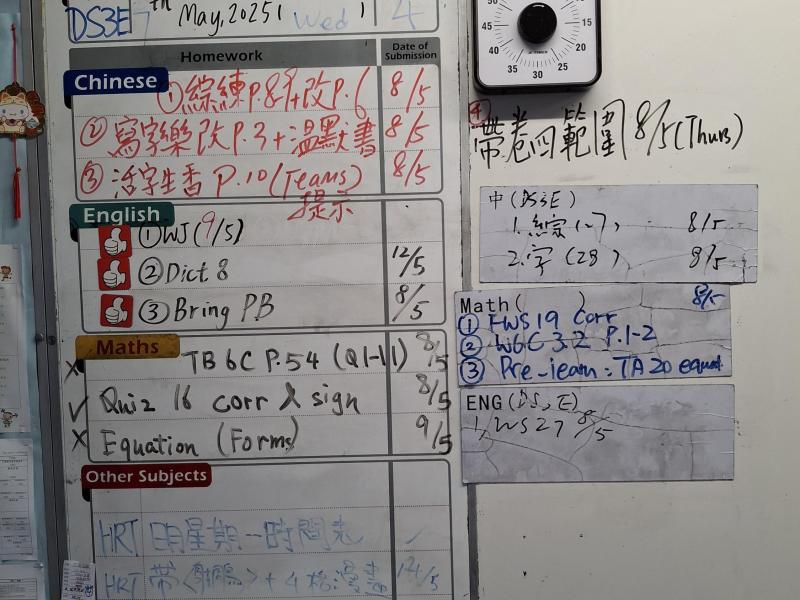 DS3E 7th May, 2025 Wed 4
Homework Date of Submission
Chinese
① 綜練P.8,9+改P.6 8/5
② 寫字樂改P.3+溫默書 8/5
③ 活字生香 P.10 (Teams) 8/5
提示
English
① WJ (9/5)
② Dict 8 12/5
③ Bring PB 8/5
Maths
× TB 6C P.54 (Q1-11) 8/5
✓ Quiz 16 corr & sign 8/5
× Equation (Forms) 9/5
Other Subjects
HRT 明星期一時間表
HRT 帶 + 4 12/5
15
20
25
30
35
40
45
④ 帶卷四範圍 8/5 (Thurs)
中(DS3E)
1. 綜(27) 8/5
2. 字(28) 8/5
Math( ) 8/5
① FWS19 Corr
② W6C 3.2 P.1-2
③ Pre-learn: TA20 equat.
ENG(DS,E)
1. WS27 8/5